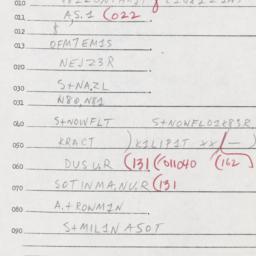 010
011 A,S.1 (022
012 &
013 OFM7EM1S
020 NEJ23R
030 S+NA,ZL
031 N80,N81
040 S+NOWFLT S+NOWFLO1+83R
050 KRACT )K1LIP1T XX(—)
060 DUSUR (131 (011040 (162
070 SOTINMA,NUR (131
080 A,+ROWM1N
090 S+MIL1NASOT